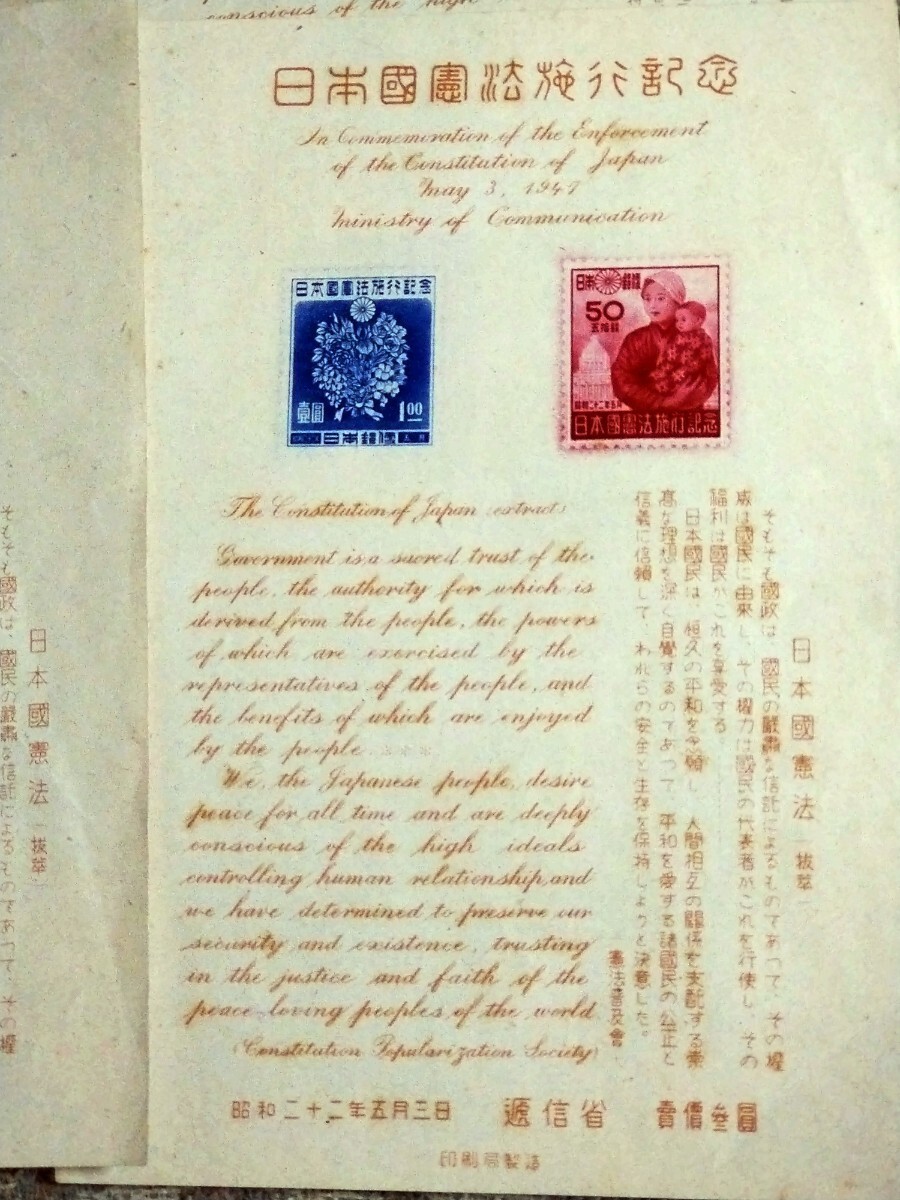 conscious of the high
日本國憲法施行記念
In Commemoration of the Enforcement
of the Constitution of Japan
May 3, 1947
Ministry of Communication
日本国憲法施行記念
壹圓
1.00
日本郵便
日本郵便
50
五拾錢
昭和二十二年五月
日本國憲法施行記念
The Constitution of Japan (extract)
Government is a sacred trust of the
people, the authority for which is
derived from the people, the powers
of which are exercised by the
representatives of the people, and
the benefits of which are enjoyed
by the people
We, the Japanese people, desire
peace for all time and are deeply
conscious of the high ideals
controlling human relationship, and
we have determined to preserve our
security and existence, trusting
in the justice and faith of the
peace-loving peoples of the world
(Constitution Popularization Society)
日本國憲法(拔萃)
そもそも國政は、國民の嚴肅な信託によるものであつて、その權
威は國民に由來し、その權力は國民の代表者がこれを行使し、その
福利は國民がこれを享受する。
日本國民は、恒久の平和を念願し、人間相互の關係を支配する崇
高な理想を深く自覺するのであつて、平和を愛する諸國民の公正と
信義に信賴して、われらの安全と生存を保持しようと決意した。
憲法普及會
昭和二十二年五月三日
遞信省
賣價參圓
印刷局製造
日本國憲法(拔萃)
そもそも國政は、國民の嚴肅な信託によるものであつて、その權